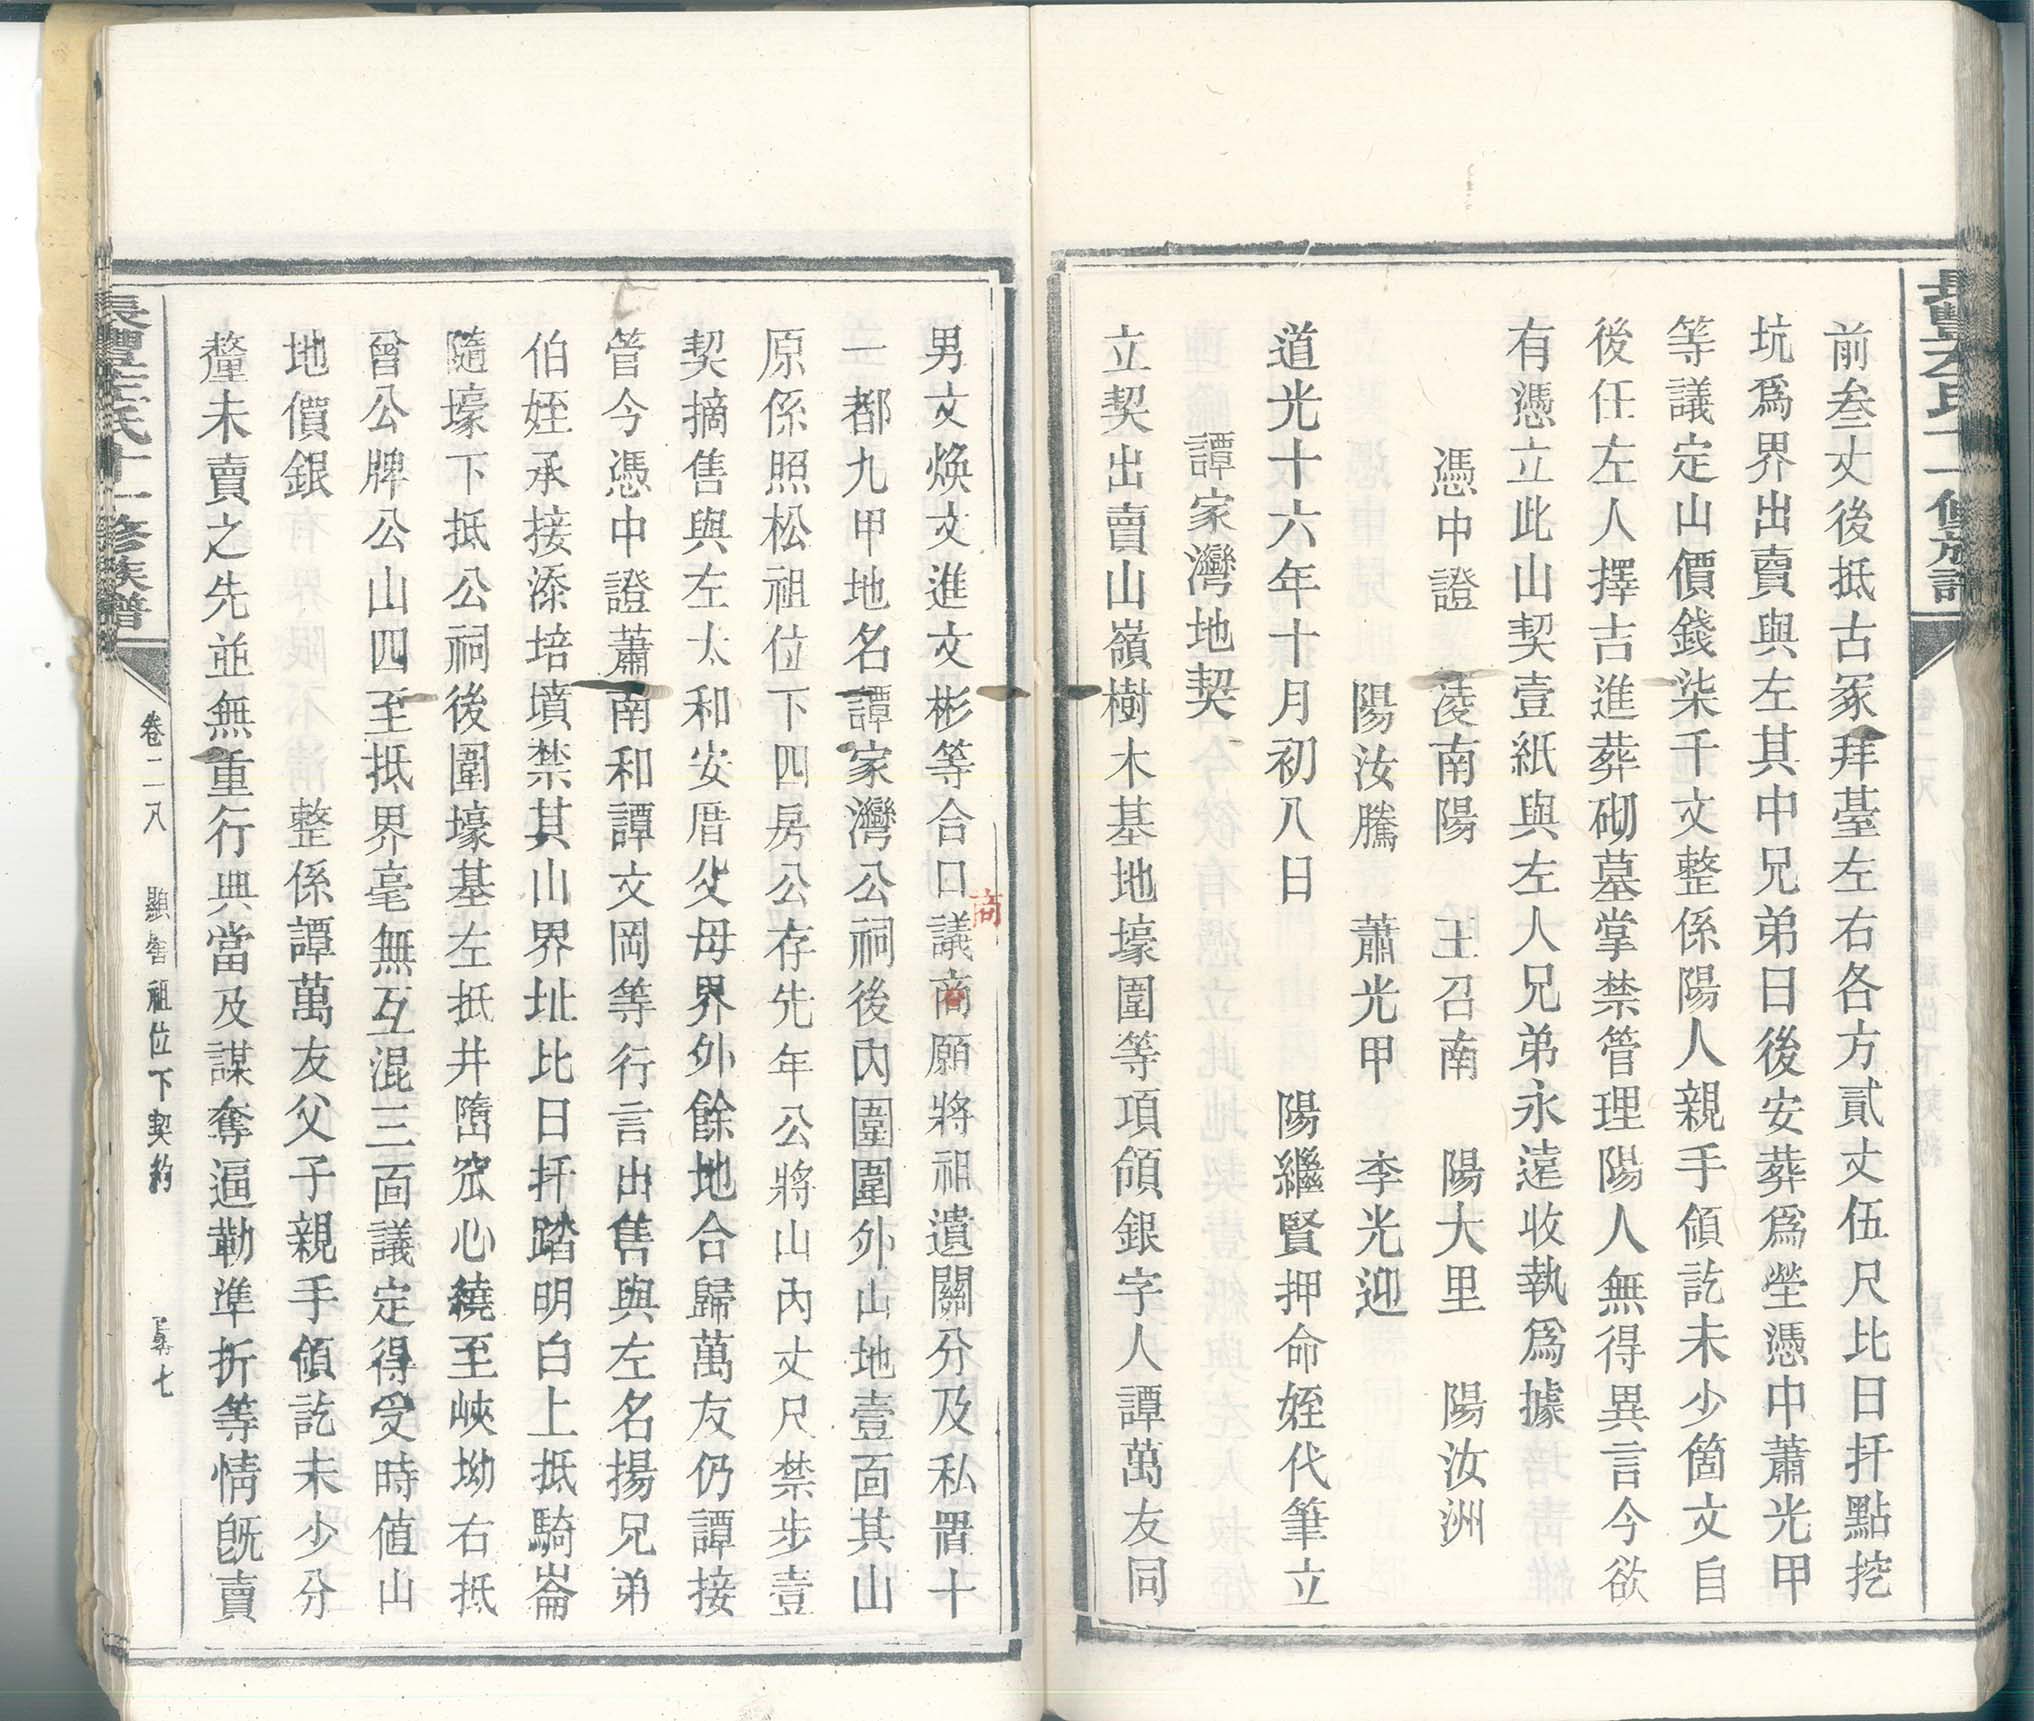 前叁丈後抵古冢拜臺左右各方貳丈伍尺比日扦點挖
坑爲界出賣與左其中兄弟日後安葬爲塋憑中蕭光甲
等議定山價錢柒千文整係陽人親手領訖未少箇文自
後任左人擇吉進葬砌墓掌禁管理陽人無得異言今欲
有憑立此山契壹紙與左人兄弟永遠收執爲據
憑中證 凌南陽 王召南 陽大里 陽汝洲
陽汝騰 蕭光甲 李光迎
道光十六年十月初八日 陽繼賢押命姪代筆立
譚家灣地契
立契出賣山嶺樹木基地壕圍等項領銀字人譚萬友同
男文煥文進文彬等合口議商願將祖遺關分及私置十
商
一都九甲地名譚家灣公祠後內圍圍外山地壹面其山
原係照松祖位下四房公存先年公將山內丈尺禁步壹
契摘售與左太和安厝父母界外餘地合歸萬友仍譚接
管今憑中證蕭南和譚文岡等行言出售與左名揚兄弟
伯姪承接添培墳禁其山界址比日扦踏明白上抵騎崙
隨壕下抵公祠後圍壕基左抵井墮窊心繞至峽坳右抵
曾公牌公山四至抵界毫無互混三面議定得受時值山
地價銀 整係譚萬友父子親手領訖未少分
釐未賣之先並無重行典當及謀奪逼勒準折等情旣賣
長豐左氏十一修族譜
卷二八 顯 祖位下契約
七